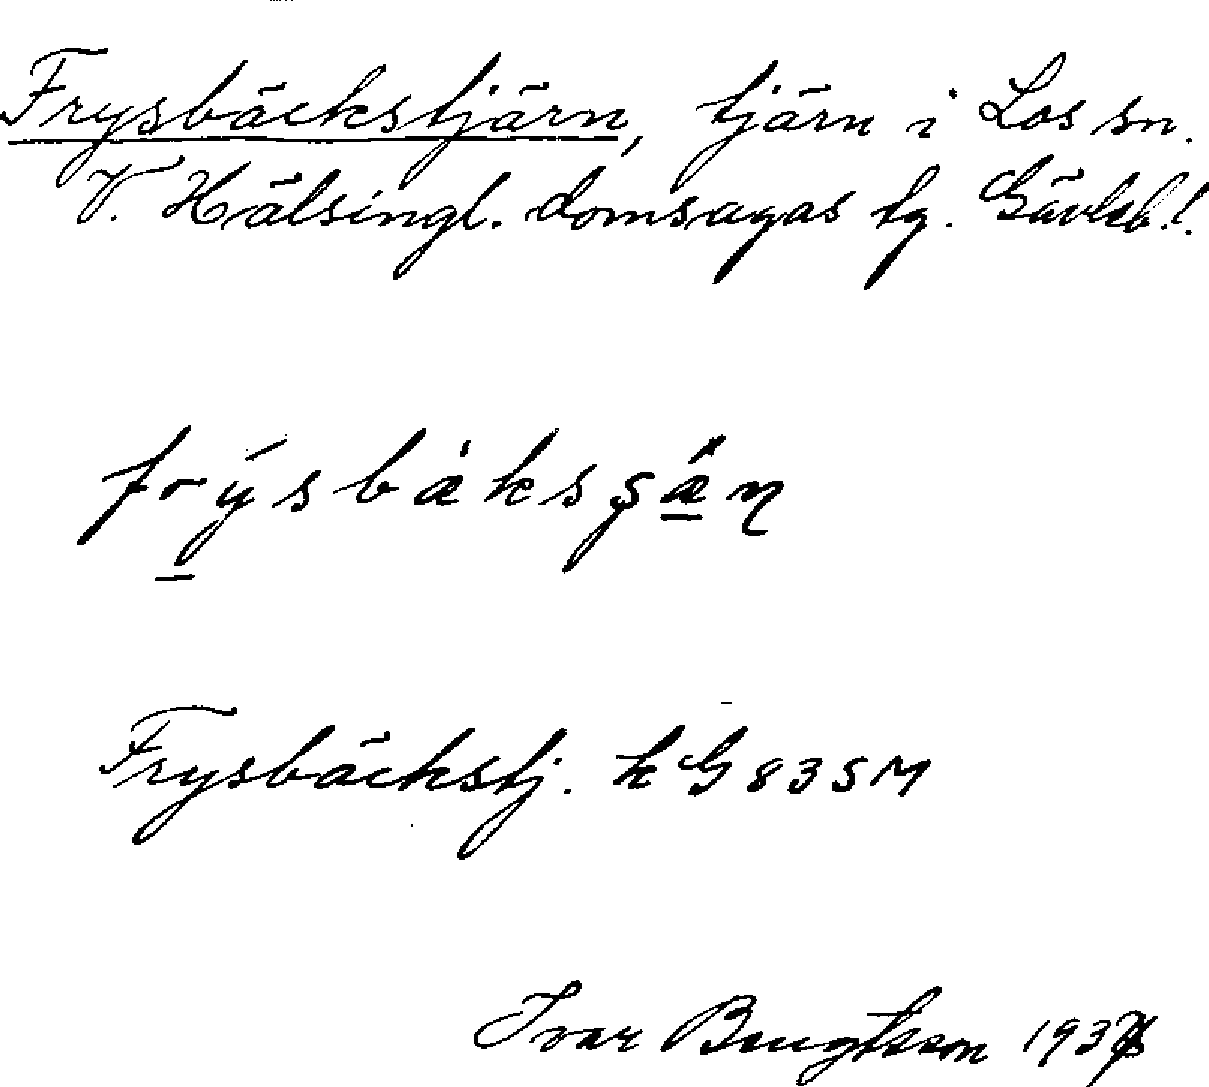 Frysbäckstjärn, tjärn i Los sn.
V. Hälsingl. domsagas tg. Gävleb. l.
frýsbàksʂǽɳ
Frysbäckstj. k G 835 M
Ivar Bengtsson